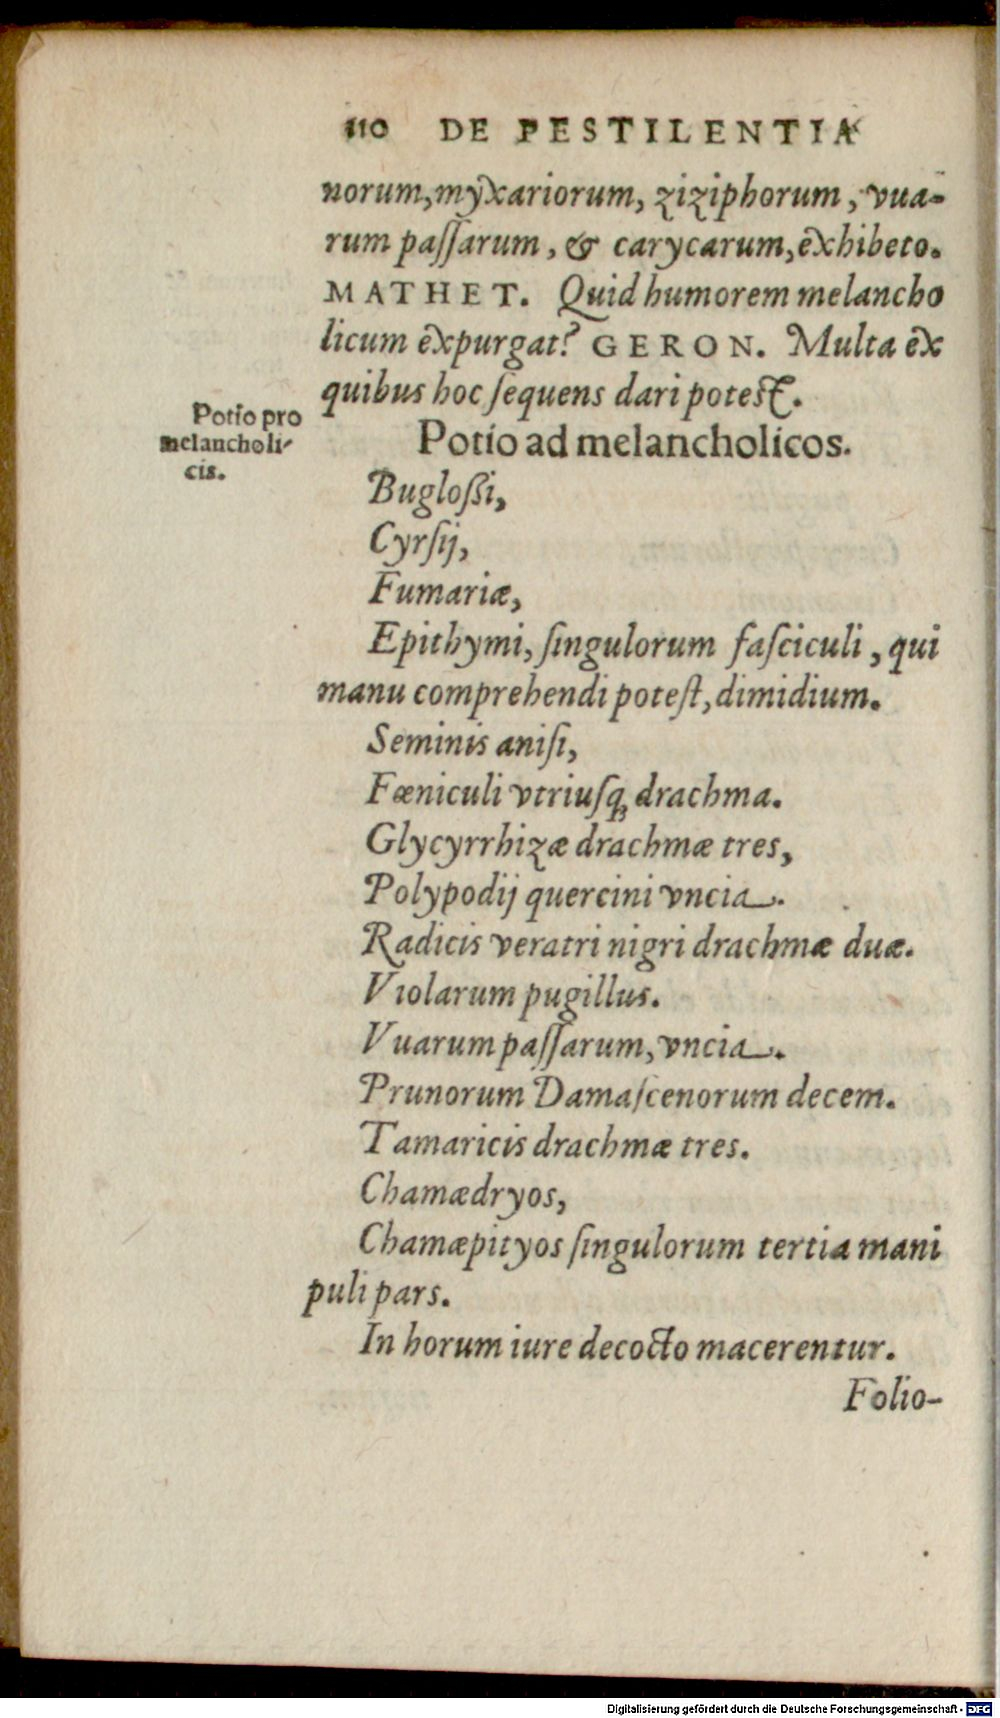 110 DE PESTILENTIA
norum, myxariorum, ziziphorum, vua-
rum paſſarum, & carycarum, exhibeto.
MATHET. Quid humorem melancho
licum expurgat? GERON. Multa ex
quibus hoc ſequens dari poteſt.
Potio pro
melancholi-
cis.
Potio ad melancholicos.
Bugloßi,
Cyrſij,
Fumariæ,
Epithymi, ſingulorum faſciculi, qui
manu comprehendi poteſt, dimidium.
Seminis aniſi,
Fœniculi vtriuſq; drachma.
Glycyrrhizæ drachmæ tres,
Polypodij quercini vncia.
Radicis veratri nigri drachmæ duæ.
Violarum pugillus.
Vuarum paſſarum, vncia.
Prunorum Damaſcenorum decem.
Tamaricis drachmæ tres.
Chamædryos,
Chamæpityos ſingulorum tertia mani
puli pars.
In horum iure decocto macerentur.
Folio-
Digitalisierung gefördert durch die Deutsche Forschungsgemeinschaft - DFG